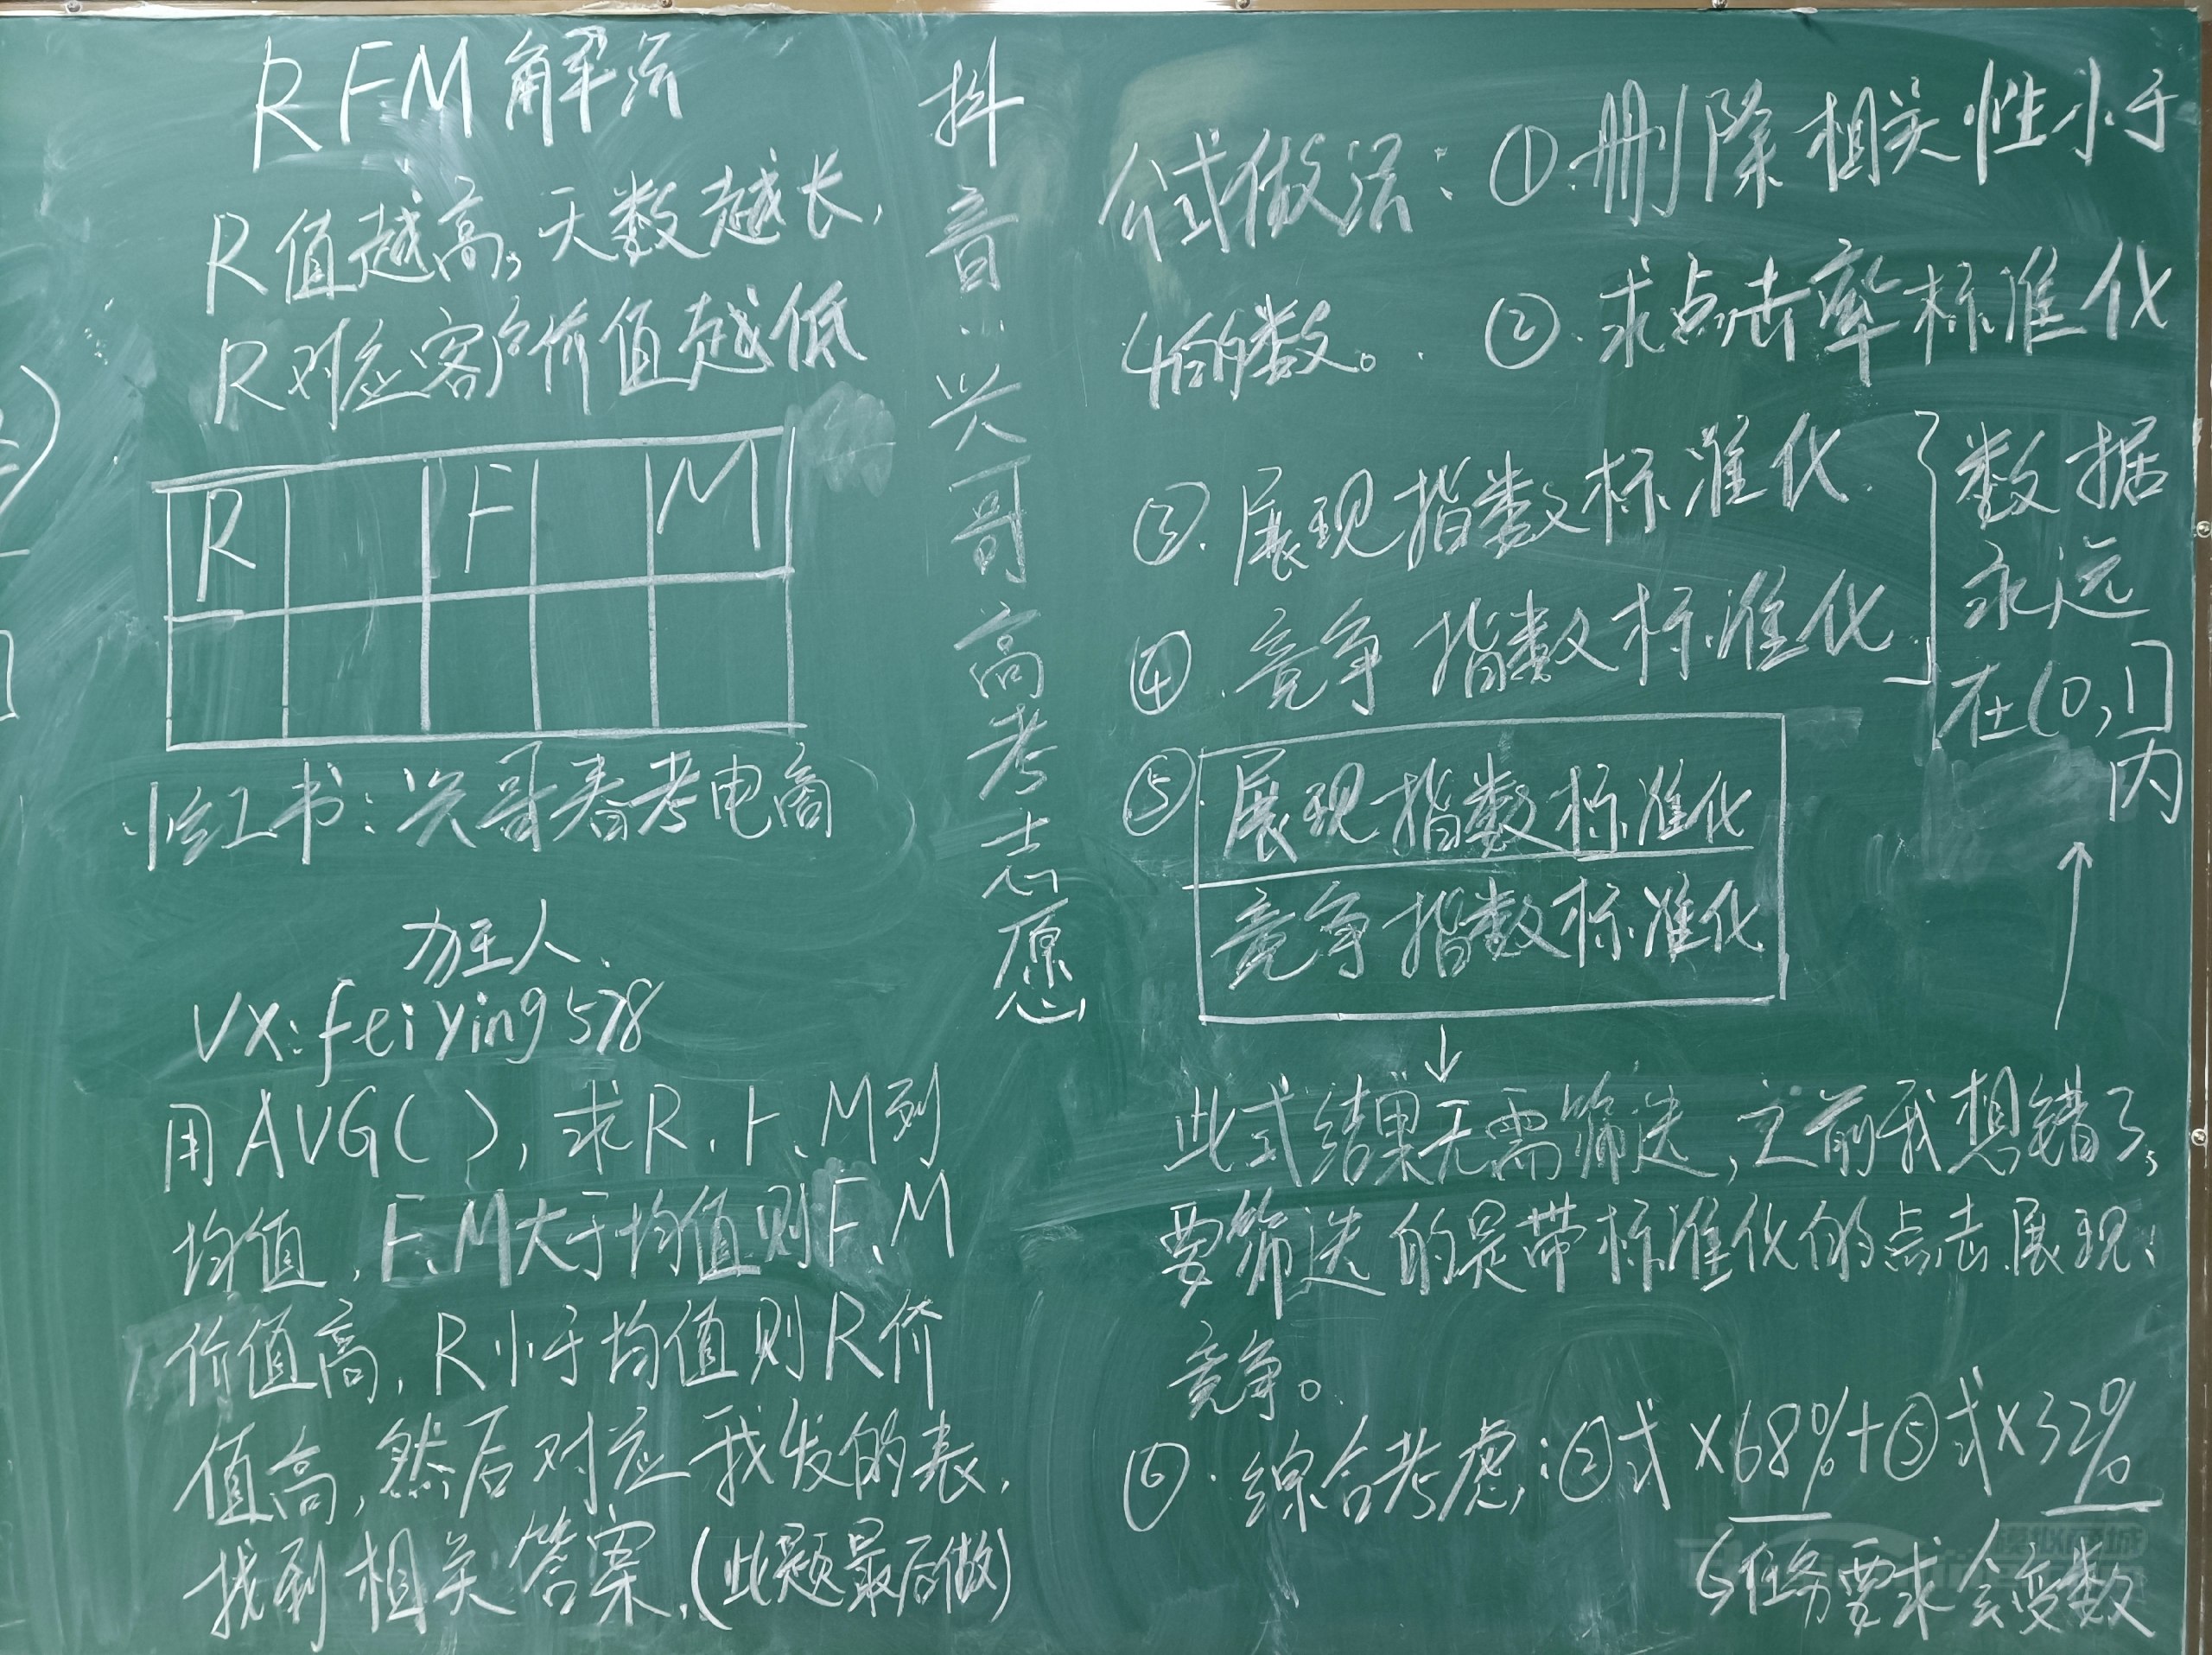 RFM解法
R值越高,天数越长,
R对应客户价值越低
R F M
小红书:兴哥春考电商
VX:feiying578
用AVG(),求R、F、M列
均值,F、M大于均值则F、M
价值高,R小于均值则R价
值高,然后对应我发的表,
找到相关答案.(此题最后做)
抖音:兴哥高考志愿
式做法:①.删除相关性小于
的数。②.求点击率标准化
③.展现指数标准化
④.竞争指数标准化
数据
永远
在(0,1]
内
⑤展现指数标准化
竞争指数标准化
↓
↑
此式结果无需筛选,之前我想错了,
要筛选的是带标准化的点击、展现、
竞争。
⑥.综合考虑:②式×68%+⑤式×32%
任务要求会变数
模拟商城